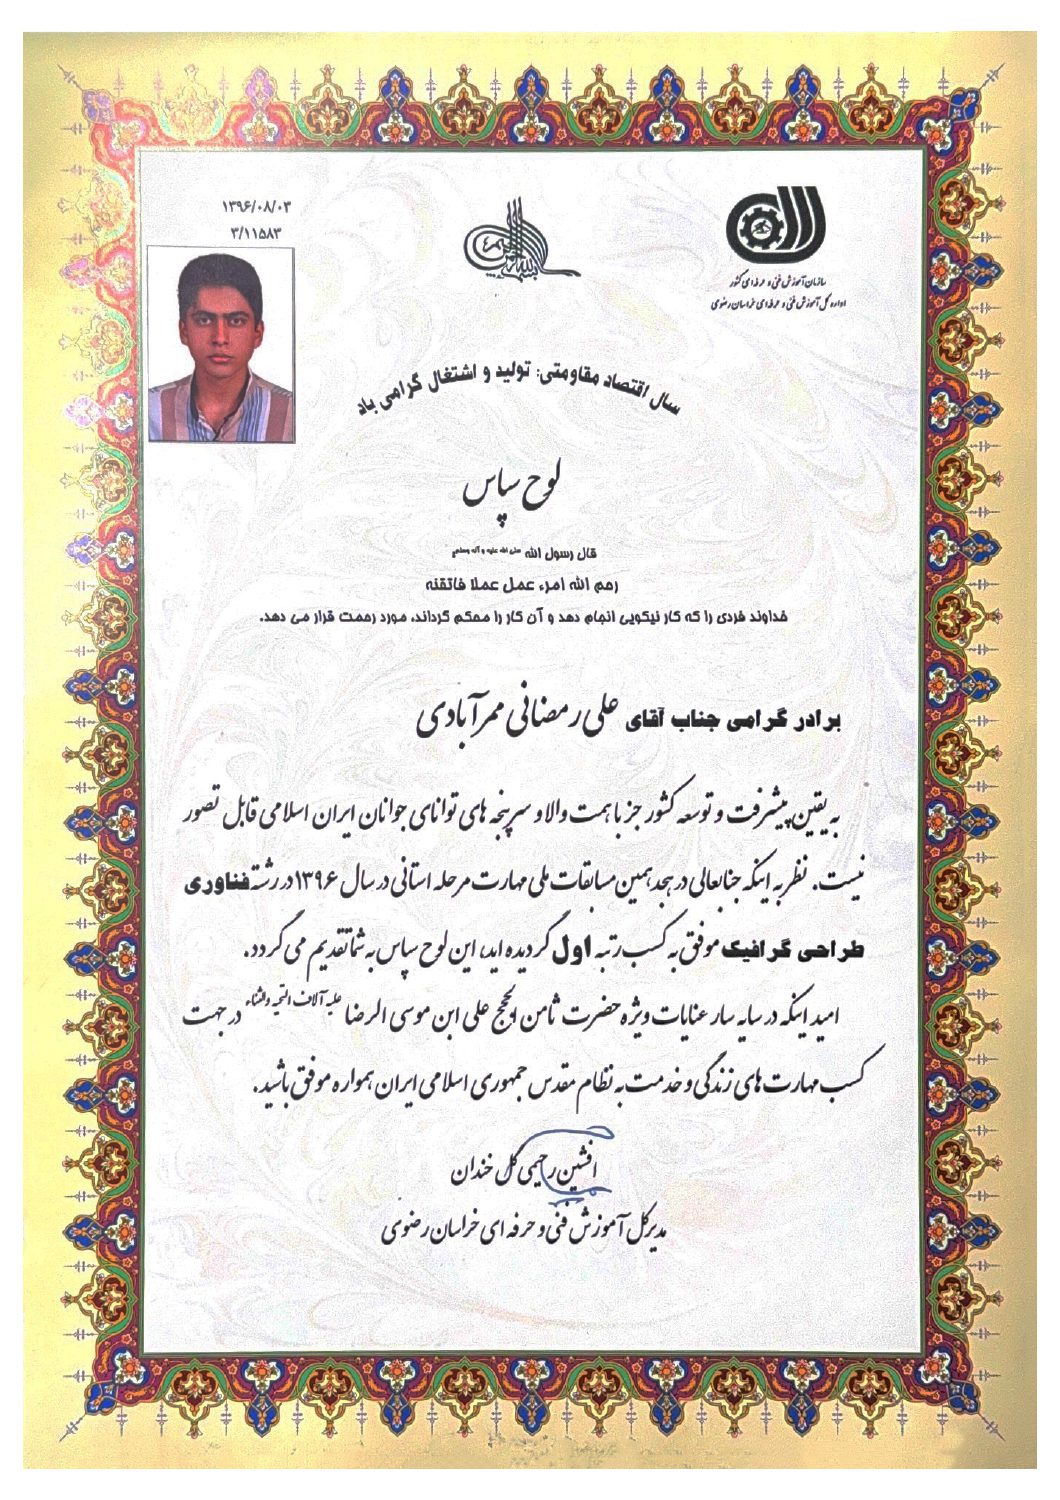 ۱۳۹۶/۰۸/۰۳
۳/۱۱۵۸۳
سازمان آموزش فنی و حرفه ای کشور
اداره کل آموزش فنی و حرفه ای خراسان رضوی
سال اقتصاد مقاومتی: تولید و اشتغال گرامی باد
لوح سپاس
قال رسول الله صلی الله علیه و آله وسلم
رحم الله امرء عمل عملا فاتقنه
خداوند فردی را که کار نیکویی انجام دهد و آن کار را محکم گرداند، مورد رحمت قرار می دهد.
برادر گرامی جناب آقای علی رمضانی ممرآبادی
به یقین پیشرفت و توسعه کشور جز با همت والا و سرپنجه های توانای جوانان ایران اسلامی قابل تصور
نیست. نظر به اینکه جنابعالی در هجدهمین مسابقات ملی مهارت مرحله استانی در سال ۱۳۹۶ در رشته فناوری
طراحی گرافیک موفق به کسب رتبه اول گردیده اید، این لوح سپاس به شما تقدیم می گردد.
امید اینکه در سایه سار عنایات ویژه حضرت ثامن الحجج علی ابن موسی الرضا علیه آلاف التحیه والثناء در جهت
کسب مهارت های زندگی و خدمت به نظام مقدس جمهوری اسلامی ایران همواره موفق باشید.
افشین رحیمی گل خندان
مدیرکل آموزش فنی و حرفه ای خراسان رضوی